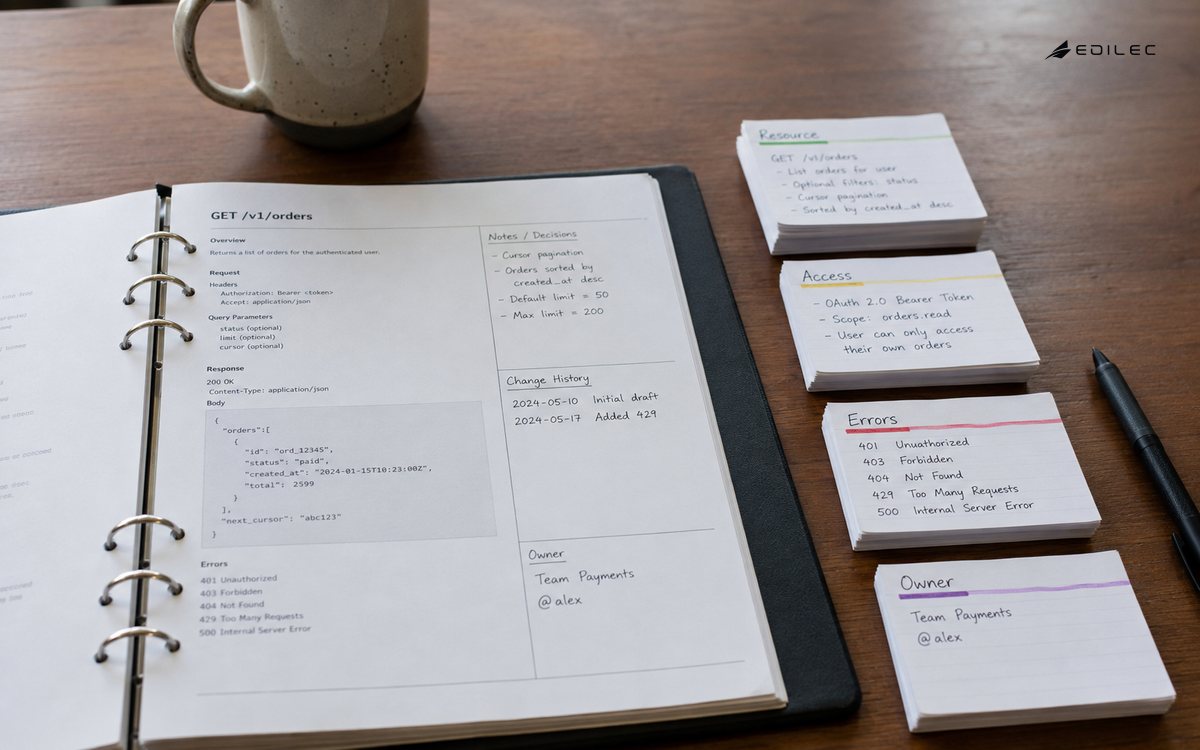 EDILEC
GET /v1/orders
Overview
Returns a list of orders for the authenticated user.
Request
Headers
Authorization: Bearer <token>
Accept: application/json
Query Parameters
status (optional)
limit (optional)
cursor (optional)
Response
200 OK
Content-Type: application/json
Body
{
"orders":[
{
"id": "ord_12345",
"status": "paid",
"created_at": "2024-01-15T10:23:00Z",
"total": 2599
}
],
"next_cursor": "abc123"
}
Errors
401 Unauthorized
403 Forbidden
404 Not Found
429 Too Many Requests
500 Internal Server Error
Notes / Decisions
- Cursor pagination
- Orders sorted by
created_at desc
- Default limit = 50
- Max limit = 200
Change History
2024-05-10 Initial draft
2024-05-17 Added 429
Owner
Team Payments
@alex
Resource
GET /v1/orders
- List orders for user
- Optional filters: status
- Cursor pagination
- Sorted by created_at desc
Access
- OAuth 2.0 Bearer Token
- Scope: orders.read
- User can only access
their own orders
Errors
401 Unuathorized
403 Forbidden
404 Not Found
429 Too Many Requests
500 Internal Server Error
Owner
Team Payments
@alex